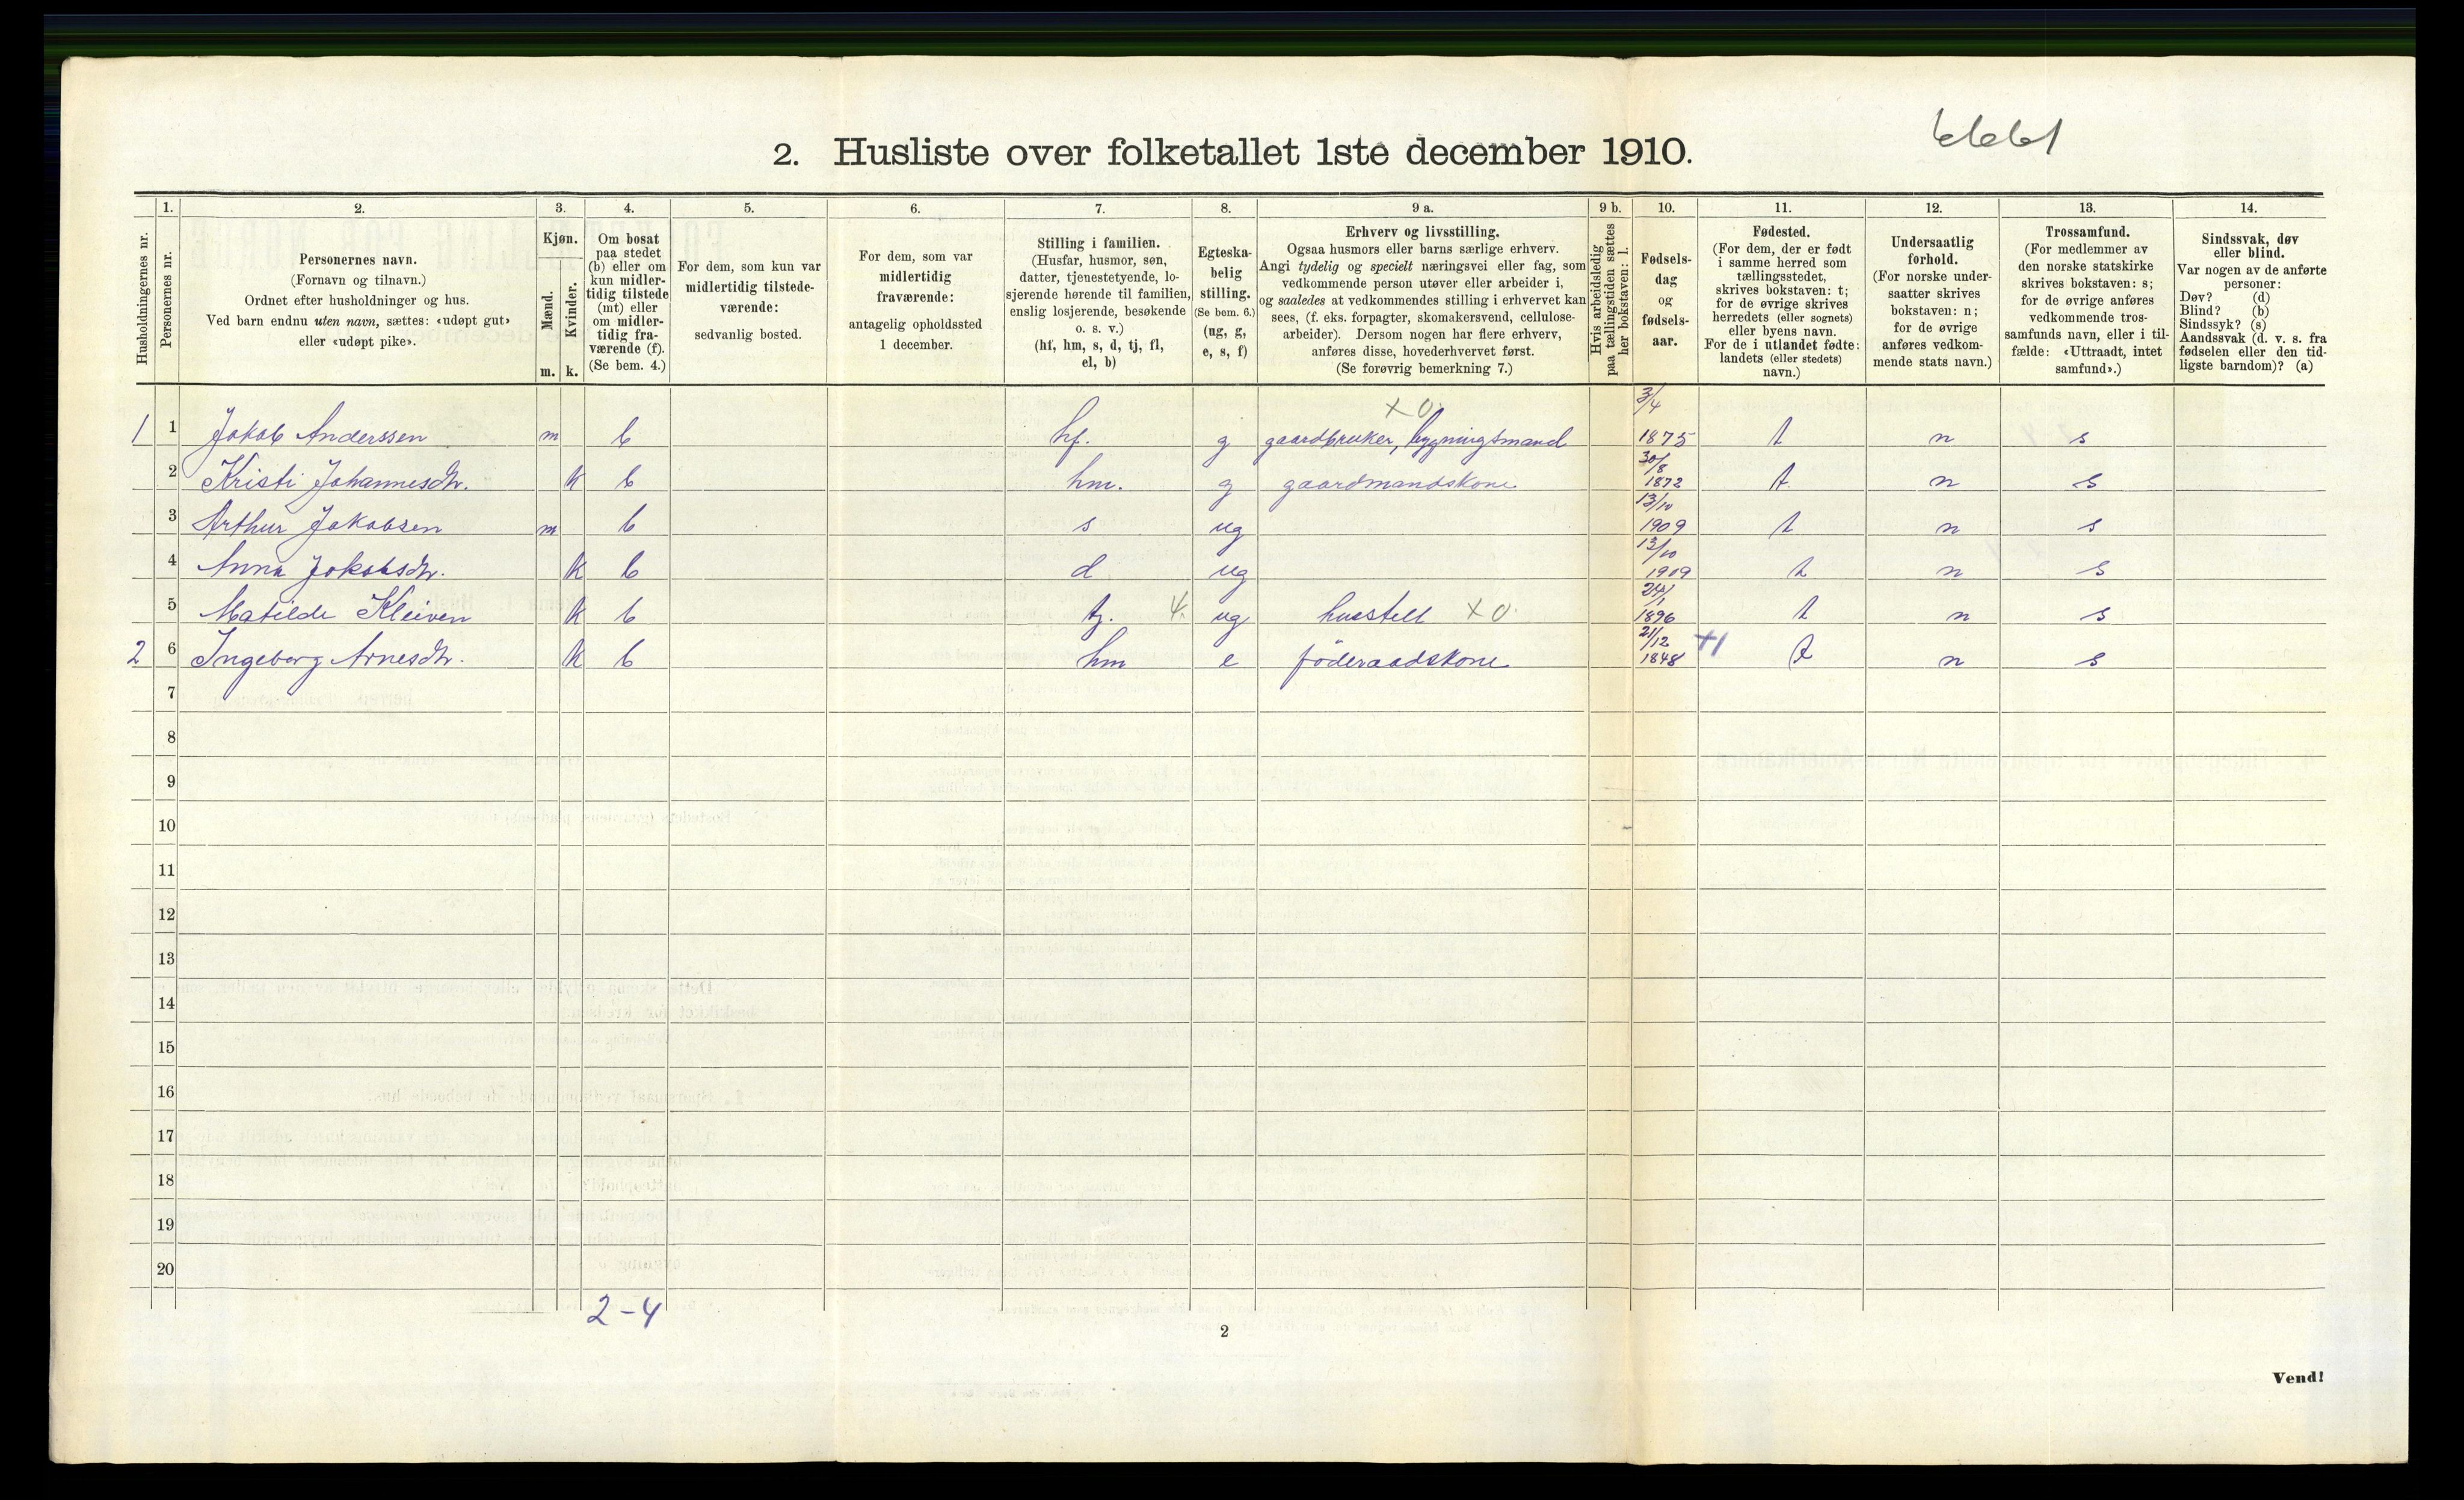 6661
2. Husliste over folketallet 1ste december 1910.
1. 2. 3. 4. 5. 6. 7. 8. 9 a. 9 b. 10. 11. 12. 13. 14.
Husholdningernes nr.
Personernes nr.
Personernes navn.
(Fornavn og tilnavn.)
Ordnet efter husholdninger og hus.
Ved barn endnu uten navn, sættes: «udøpt gut»
eller «udøpt pike».
Kjøn.
Mænd.
Kvinder.
m. k.
Om bosat
paa stedet
(b) eller om
kun midler-
tidig tilstede
(mt) eller
om midler-
tidig fra-
værende (f).
(Se bem. 4.)
For dem, som kun var
midlertidig tilstede-
værende:
sedvanlig bosted.
For dem, som var
midlertidig
fraværende:
antagelig opholdssted
1 december.
Stilling i familien.
(Husfar, husmor, søn,
datter, tjenestetyende, lo-
sjerende hørende til familien,
enslig losjerende, besøkende
o. s. v.)
(hf, hm, s, d, tj, fl,
el, b)
Egteska-
belig
stilling.
(Se bem. 6.)
(ug, g,
e, s, f)
Erhverv og livsstilling.
Ogsaa husmors eller barns særlige erhverv.
Angi tydelig og specielt næringsvei eller fag, som
vedkommende person utøver eller arbeider i,
og saaledes at vedkommendes stilling i erhvervet kan
sees, (f. eks. forpagter, skomakersvend, cellulose-
arbeider). Dersom nogen har flere erhverv,
anføres disse, hovederhvervet først.
(Se forøvrig bemerkning 7.)
Hvis arbeidsledig
paa tællingstiden sættes
her bokstaven: l.
Fødsels-
dag
og
fødsels-
aar.
Fødested.
(For dem, der er født
i samme herred som
tællingsstedet,
skrives bokstaven: t;
for de øvrige skrives
herredets (eller sognets)
eller byens navn.
For de i utlandet fødte:
landets (eller stedets)
navn.)
Undersaatlig
forhold.
(For norske under-
saatter skrives
bokstaven: n;
for de øvrige
anføres vedkom-
mende stats navn.)
Trossamfund.
(For medlemmer av
den norske statskirke
skrives bokstaven: s;
for de øvrige anføres
vedkommende tros-
samfunds navn, eller i til-
fælde: «Uttraadt, intet
samfund».)
Sindssvak, døv
eller blind.
Var nogen av de anførte
personer:
Døv? (d)
Blind? (b)
Sindssyk? (s)
Aandssvak (d. v. s. fra
fødselen eller den tid-
ligste barndom)? (a)
x 0. 3/4
1 1 Jakob Anderssen m b hf. g gaardbruker, bygningsmand 1875 t n s
30/8
2 Kristi Johannesdtr. k b hm. g gaardmandskone 1872 t. n s
13/10
3 Arthur Jakobsen m b s ug 1909 t n s
13/10
4 Anna Jakobsdtr. k b d ug 1909 t n s
24/1
5 Matilde Kleiven k b tj. 4. ug husstell x 0. 1896 t n s
21/12
2 6 Ingeborg Arnesdtr. k b hm e föderaadskone 1848 +1 t n s
7
8
9
10
11
12
13
14
15
16
17
18
19
20
2-4
2
Vend!